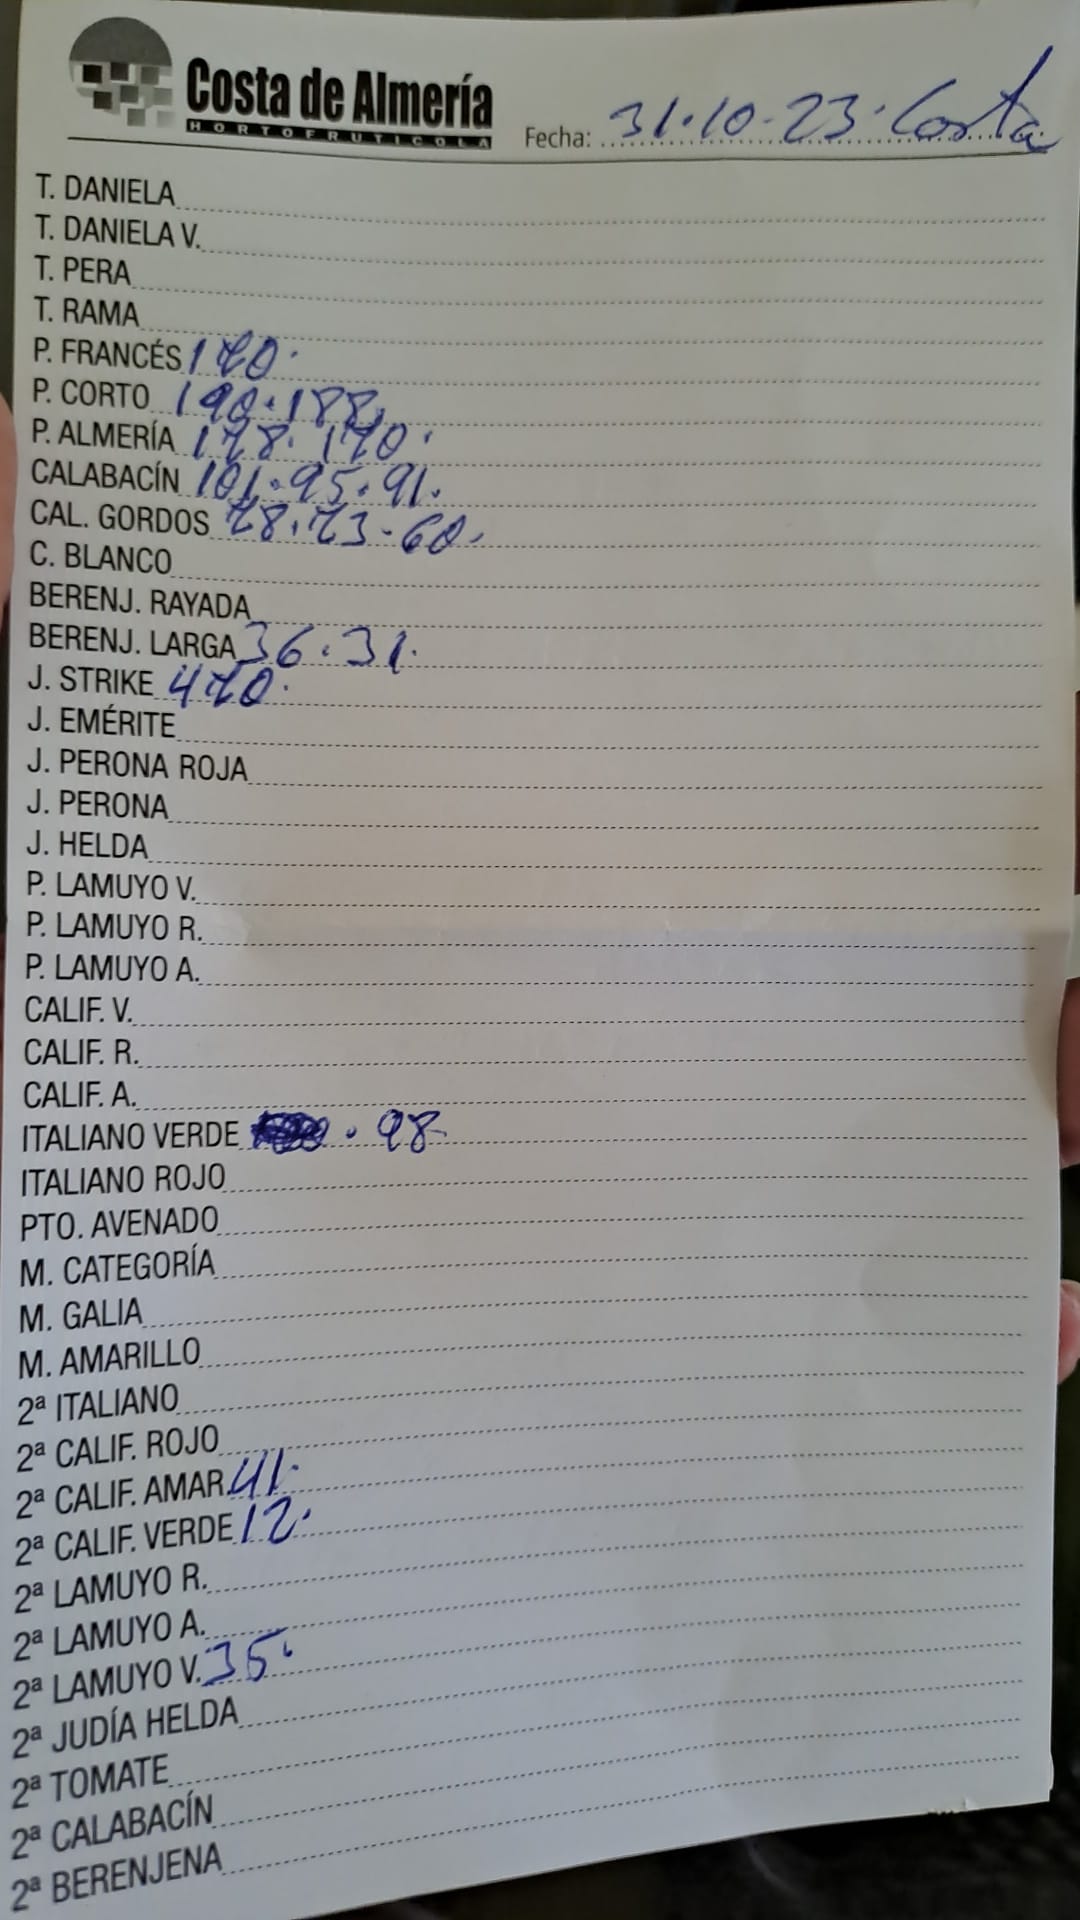 Costa de Almería
HORTOFRUTICOLA
Fecha: 31.10.23. Costa
T. DANIELA
T. DANIELA V.
T. PERA
T. RAMA
P. FRANCÉS 170.
P. CORTO 190.188.
P. ALMERÍA 178. 170.
CALABACÍN 101.95.91.
CAL. GORDOS 78.73.60.
C. BLANCO
BERENJ. RAYADA
BERENJ. LARGA 36.31.
J. STRIKE 470.
J. EMÉRITE
J. PERONA ROJA
J. PERONA
J. HELDA
P. LAMUYO V.
P. LAMUYO R.
P. LAMUYO A.
CALIF. V.
CALIF. R.
CALIF. A.
ITALIANO VERDE . 98
ITALIANO ROJO
PTO. AVENADO
M. CATEGORÍA
M. GALIA
M. AMARILLO
2ª ITALIANO
2ª CALIF. ROJO
2ª CALIF. AMAR. 41.
2ª CALIF. VERDE 12.
2ª LAMUYO R.
2ª LAMUYO A.
2ª LAMUYO V. 35.
2ª JUDÍA HELDA
2ª TOMATE
2ª CALABACÍN
2ª BERENJENA